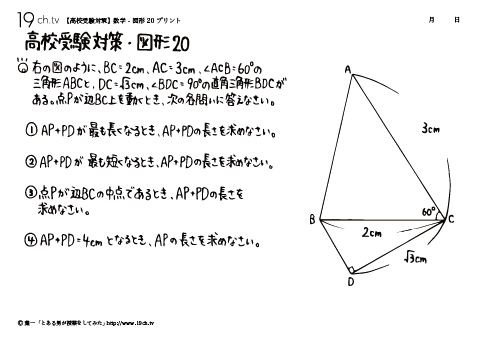 19 ch.tv 【高校受験対策】数学 - 図形20プリント 月 日
高校受験対策・図形20
右の図のように、BC=2cm、AC=3cm、∠ACB=60°の
三角形ABCと、DC=√3cm、∠BDC=90°の直角三角形BDCが
ある。点Pが辺BC上を動くとき、次の各問いに答えなさい。
① AP+PDが最も長くなるとき、AP+PDの長さを求めなさい。
② AP+PDが最も短くなるとき、AP+PDの長さを求めなさい。
③ 点Pが辺BCの中点であるとき、AP+PDの長さを
求めなさい。
④ AP+PD=4cmとなるとき、APの長さを求めなさい。
A
3cm
60°
B
C
2cm
√3cm
D
© 葉一「とある男が授業をしてみた」http://www.19ch.tv